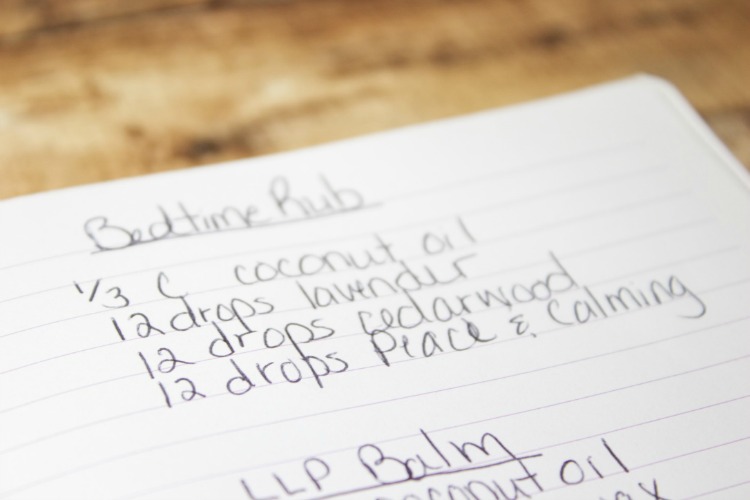 Bedtime Rub
1/3 C coconut oil
12 drops lavender
12 drops cedarwood
12 drops Peace & Calming
LLP Balm
coconut oil